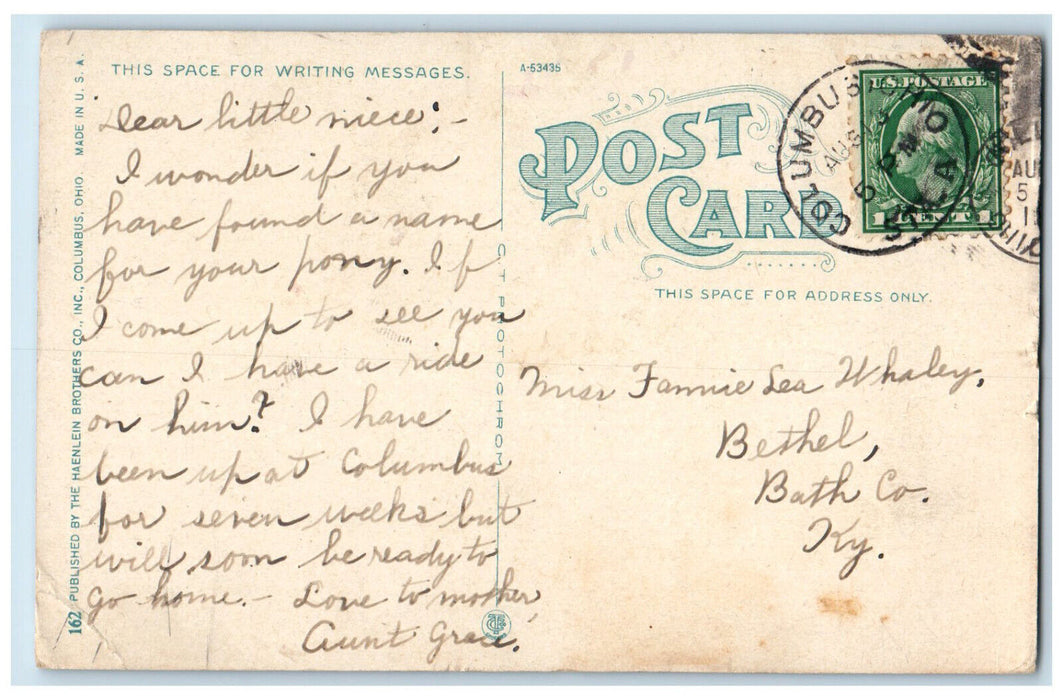 THIS SPACE FOR WRITING MESSAGES.
Dear little niece:-
I wonder if you
have found a name
for your pony. If
I come up to see you
can I have a ride
on him? I have
been up at Columbus
for seven weeks but
will soon be ready to
go home. - Love to mother,
Aunt Grace.
162 PUBLISHED BY THE HAENLEIN BROTHERS CO., INC., COLUMBUS, OHIO. MADE IN U.S.A.
C.T. PHOTOCHROM
A-53435
POST
CARD
THIS SPACE FOR ADDRESS ONLY.
U.S. POSTAGE
1 CENT 1
COLUMBUS, OHIO
AUG
5 PM
STA. A
AUG
5
Miss Fannie Lea Whaley,
Bethel,
Bath Co.
Ky.